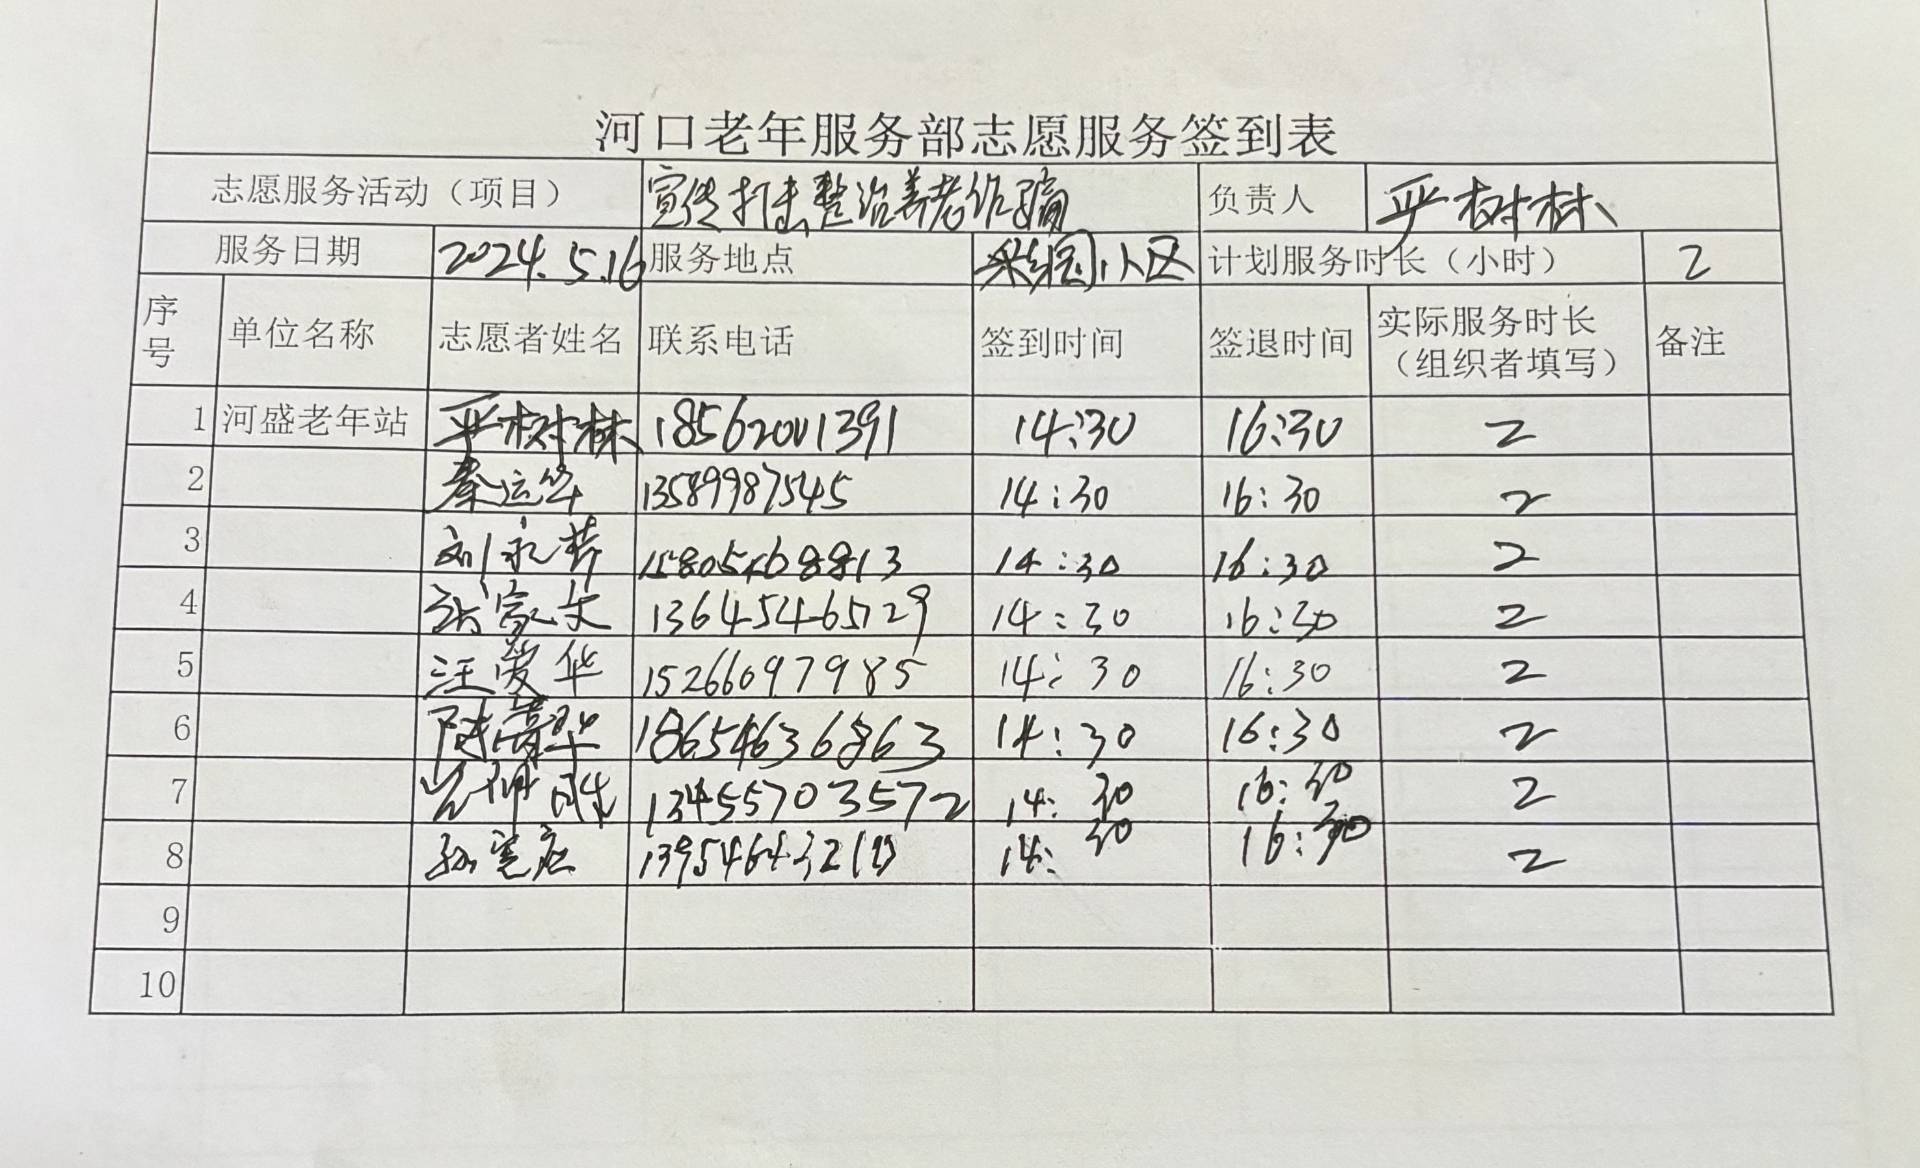 河口老年服务部志愿服务签到表
志愿服务活动（项目） 宣传打击整治养老诈骗 负责人 严树林
服务日期 2024.5.16 服务地点 小区 计划服务时长（小时） 2
序号 单位名称 志愿者姓名 联系电话 签到时间 签退时间 实际服务时长（组织者填写） 备注
1 河盛老年站 严树林 18562001391 14:30 16:30 2
2 秦运华 13589987545 14:30 16:30 2
3 刘永芳 15805468813 14:30 16:30 2
4 13645465729 14:30 16:30 2
5 汪爱华 15266097985 14:30 16:30 2
6 18654636863 14:30 16:30 2
7 13455703572 14:30 16:30 2
8 14:30 16:30 2
9
10